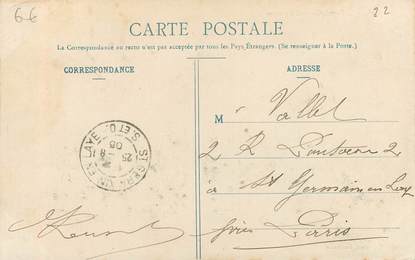 6€
22
CARTE POSTALE
La Correspondance au recto n'est pas acceptée par tous les Pays Étrangers. (Se renseigner à la Poste.)
CORRESPONDANCE
ADRESSE
M Vallet
2 R Pontoise 2
à St Germain en Laye
près Paris
ST GERMAIN-EN-LAYE
S. ET O.
25
08